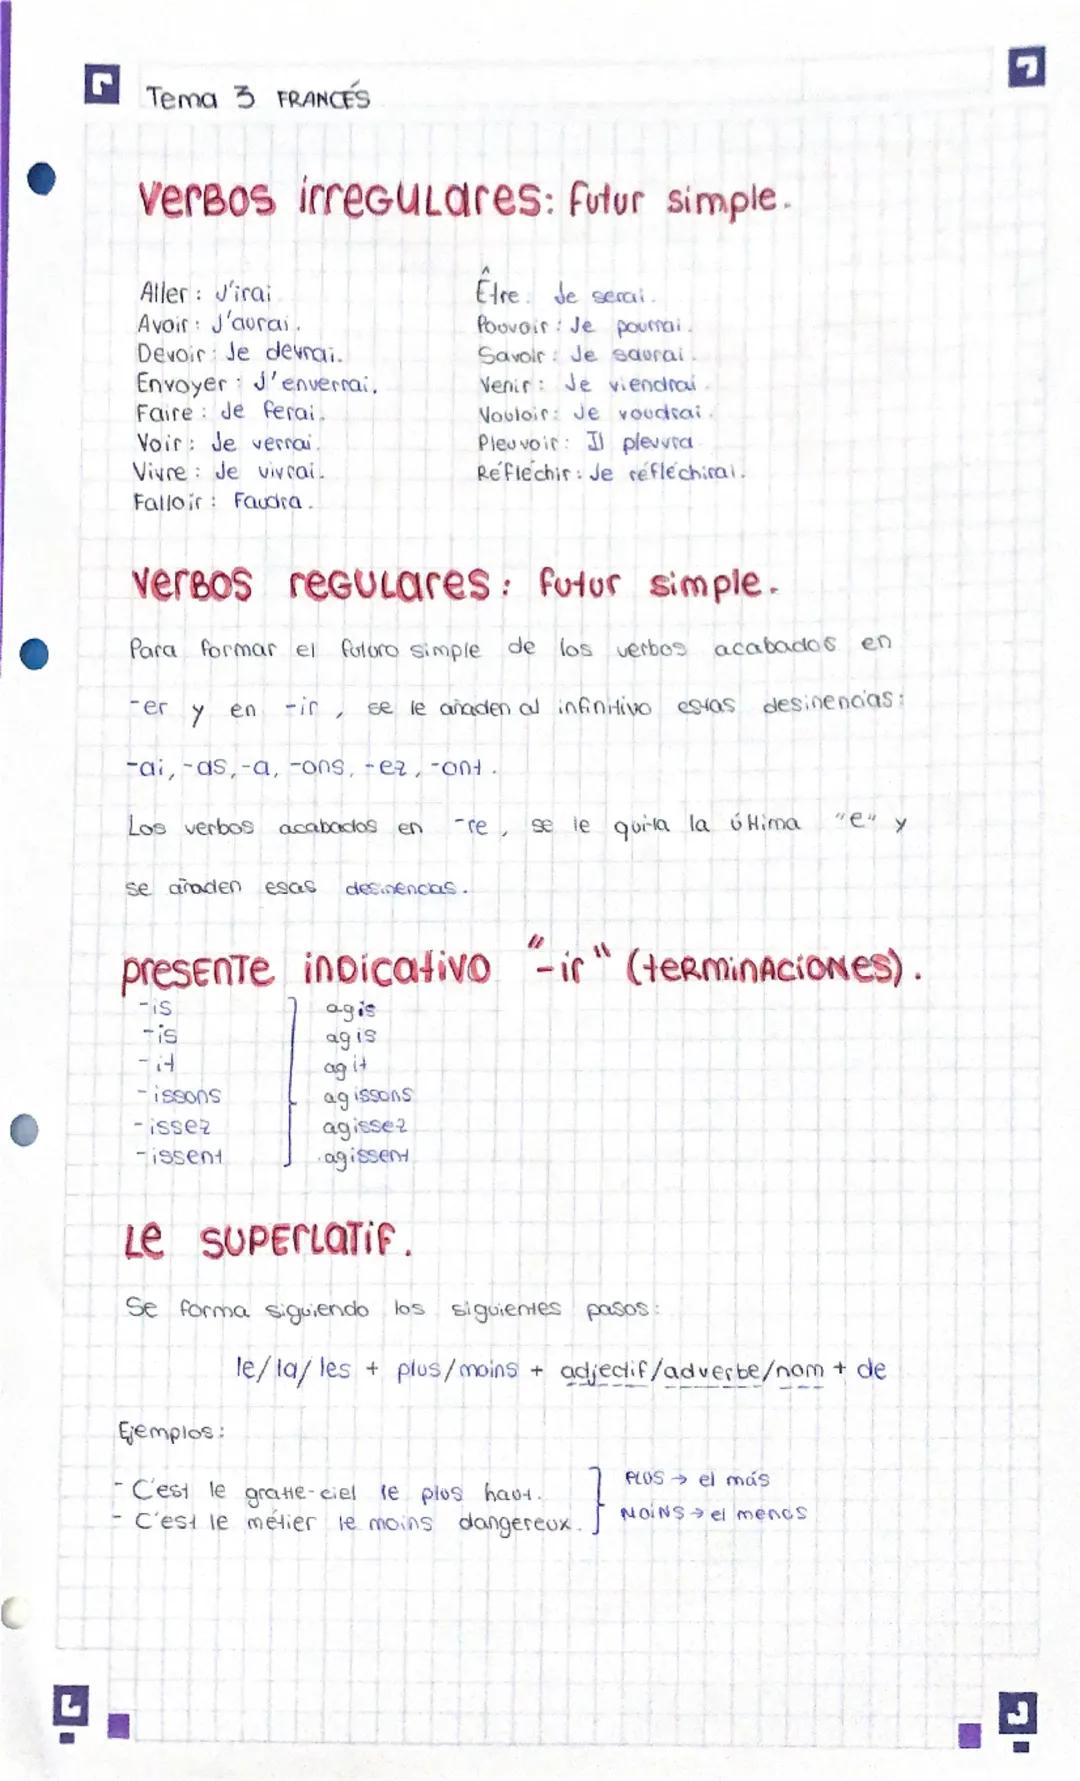 Tema 3 FRANCÉS
Verbos irregulares: futur simple.
Aller: J'irai
Avoir: J'aurai.
Devoir: Je devrai.
Envoyer: J'enverrai.
Faire: Je ferai.
Voir: Je verrai.
Vivre: Je vivrai.
Falloir: Faudra.
Être: Je serai.
Pouvoir: Je pourrai.
Savoir: Je saurai.
Venir: Je viendrai.
Vouloir: Je voudrai.
Pleuvoir: Il pleuvra
Réfléchir: Je réfléchirai.
Verbos regulares: futur simple.
Para formar el futuro simple de los verbos acabados en
-er y en -ir, se le añaden al infinitivo estas desinencias:
-ai, -as, -a, -ons, -ez, -ont.
Los verbos acabados en -re, se le quita la última "e" y
se añaden esas desinencias.
presente indicativo "-ir" (terminaciones).
-is agis
-is agis
-it agit
-issons agissons
-issez agissez
-issent agissent
Le superlatif.
Se forma siguiendo los siguientes pasos:
le/la/les + plus/moins + adjectif/adverbe/nom + de
Ejemplos:
- C'est le gratte-ciel le plus haut.
- C'est le métier le moins dangereux.
PLUS → el más
MOINS → el menos